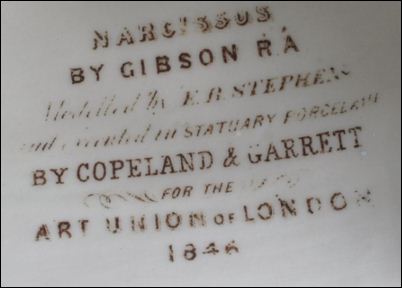 NARCISSUS
BY GIBSON RA
Modelled by E.B. STEPHENS
and executed in STATUARY PORCELAIN
BY COPELAND & GARRETT
FOR THE
ART UNION OF LONDON
1846